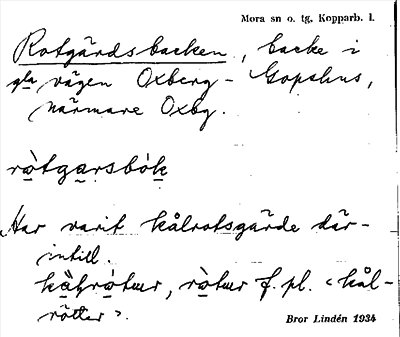 Mora sn o. tg. Kopparb. l.
Rotgärdsbacken, backe i
gla vägen Oxberg - Gopshus,
närmare Oxbg.
ròtgarsbók
Har varit kålrotsgärde där-
intill.
kàlròtur, ròtur f. pl. "kål-
rötter".
Bror Lindén 1934